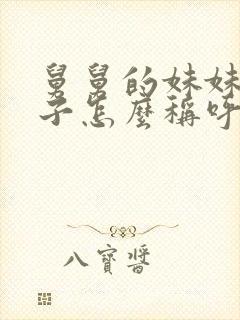 舅舅的妹妹
子怎麼稱呼
八寶醬